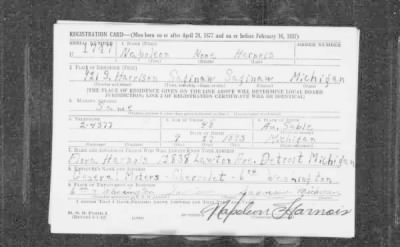 REGISTRATION CARD—(Men born on or after April 28, 1877 and on or before February 16, 1897)
SERIAL NUMBER 1. NAME (Print) ORDER NUMBER
U 1787 Napoleon None Harnois
(First) (Middle) (Last)
2. PLACE OF RESIDENCE (Print)
921 S. Harrison Saginaw Saginaw Michigan
(THE PLACE OF RESIDENCE GIVEN ON THE LINE ABOVE WILL DETERMINE LOCAL BOARD
JURISDICTION; LINE 2 OF REGISTRATION CERTIFICATE WILL BE IDENTICAL)
3. MAILING ADDRESS
Same
4. TELEPHONE
2-4377 48 Au Sable
DATE OF BIRTH
9 27 1893 Michigan
7. NAME AND ADDRESS OF PERSON WHO WILL ALWAYS KNOW YOUR ADDRESS
Harnois 12838 Lawton Ave. Detroit Michigan
8. EMPLOYER'S NAME AND ADDRESS
General Motors - Chevrolet - Washington
9. PLACE OF EMPLOYMENT OR BUSINESS
Washington Saginaw
I AFFIRM THAT I HAVE VERIFIED ABOVE ANSWERS AND THAT THEY ARE TRUE.
D. S. S. Form 1
Napoleon Harnois